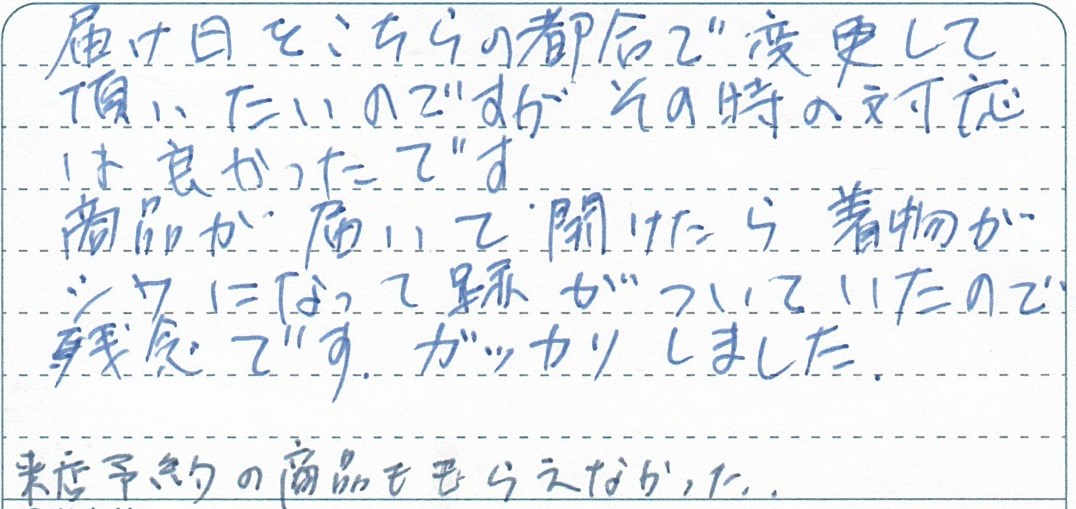 届け日をこちらの都合で変更して
頂いたいのですが その時の対応
は良かったです
商品が届いて開けたら着物が
シワになって跡がついていたので
残念です.ガッカリしました.
来店予約の商品ももらえなかった..